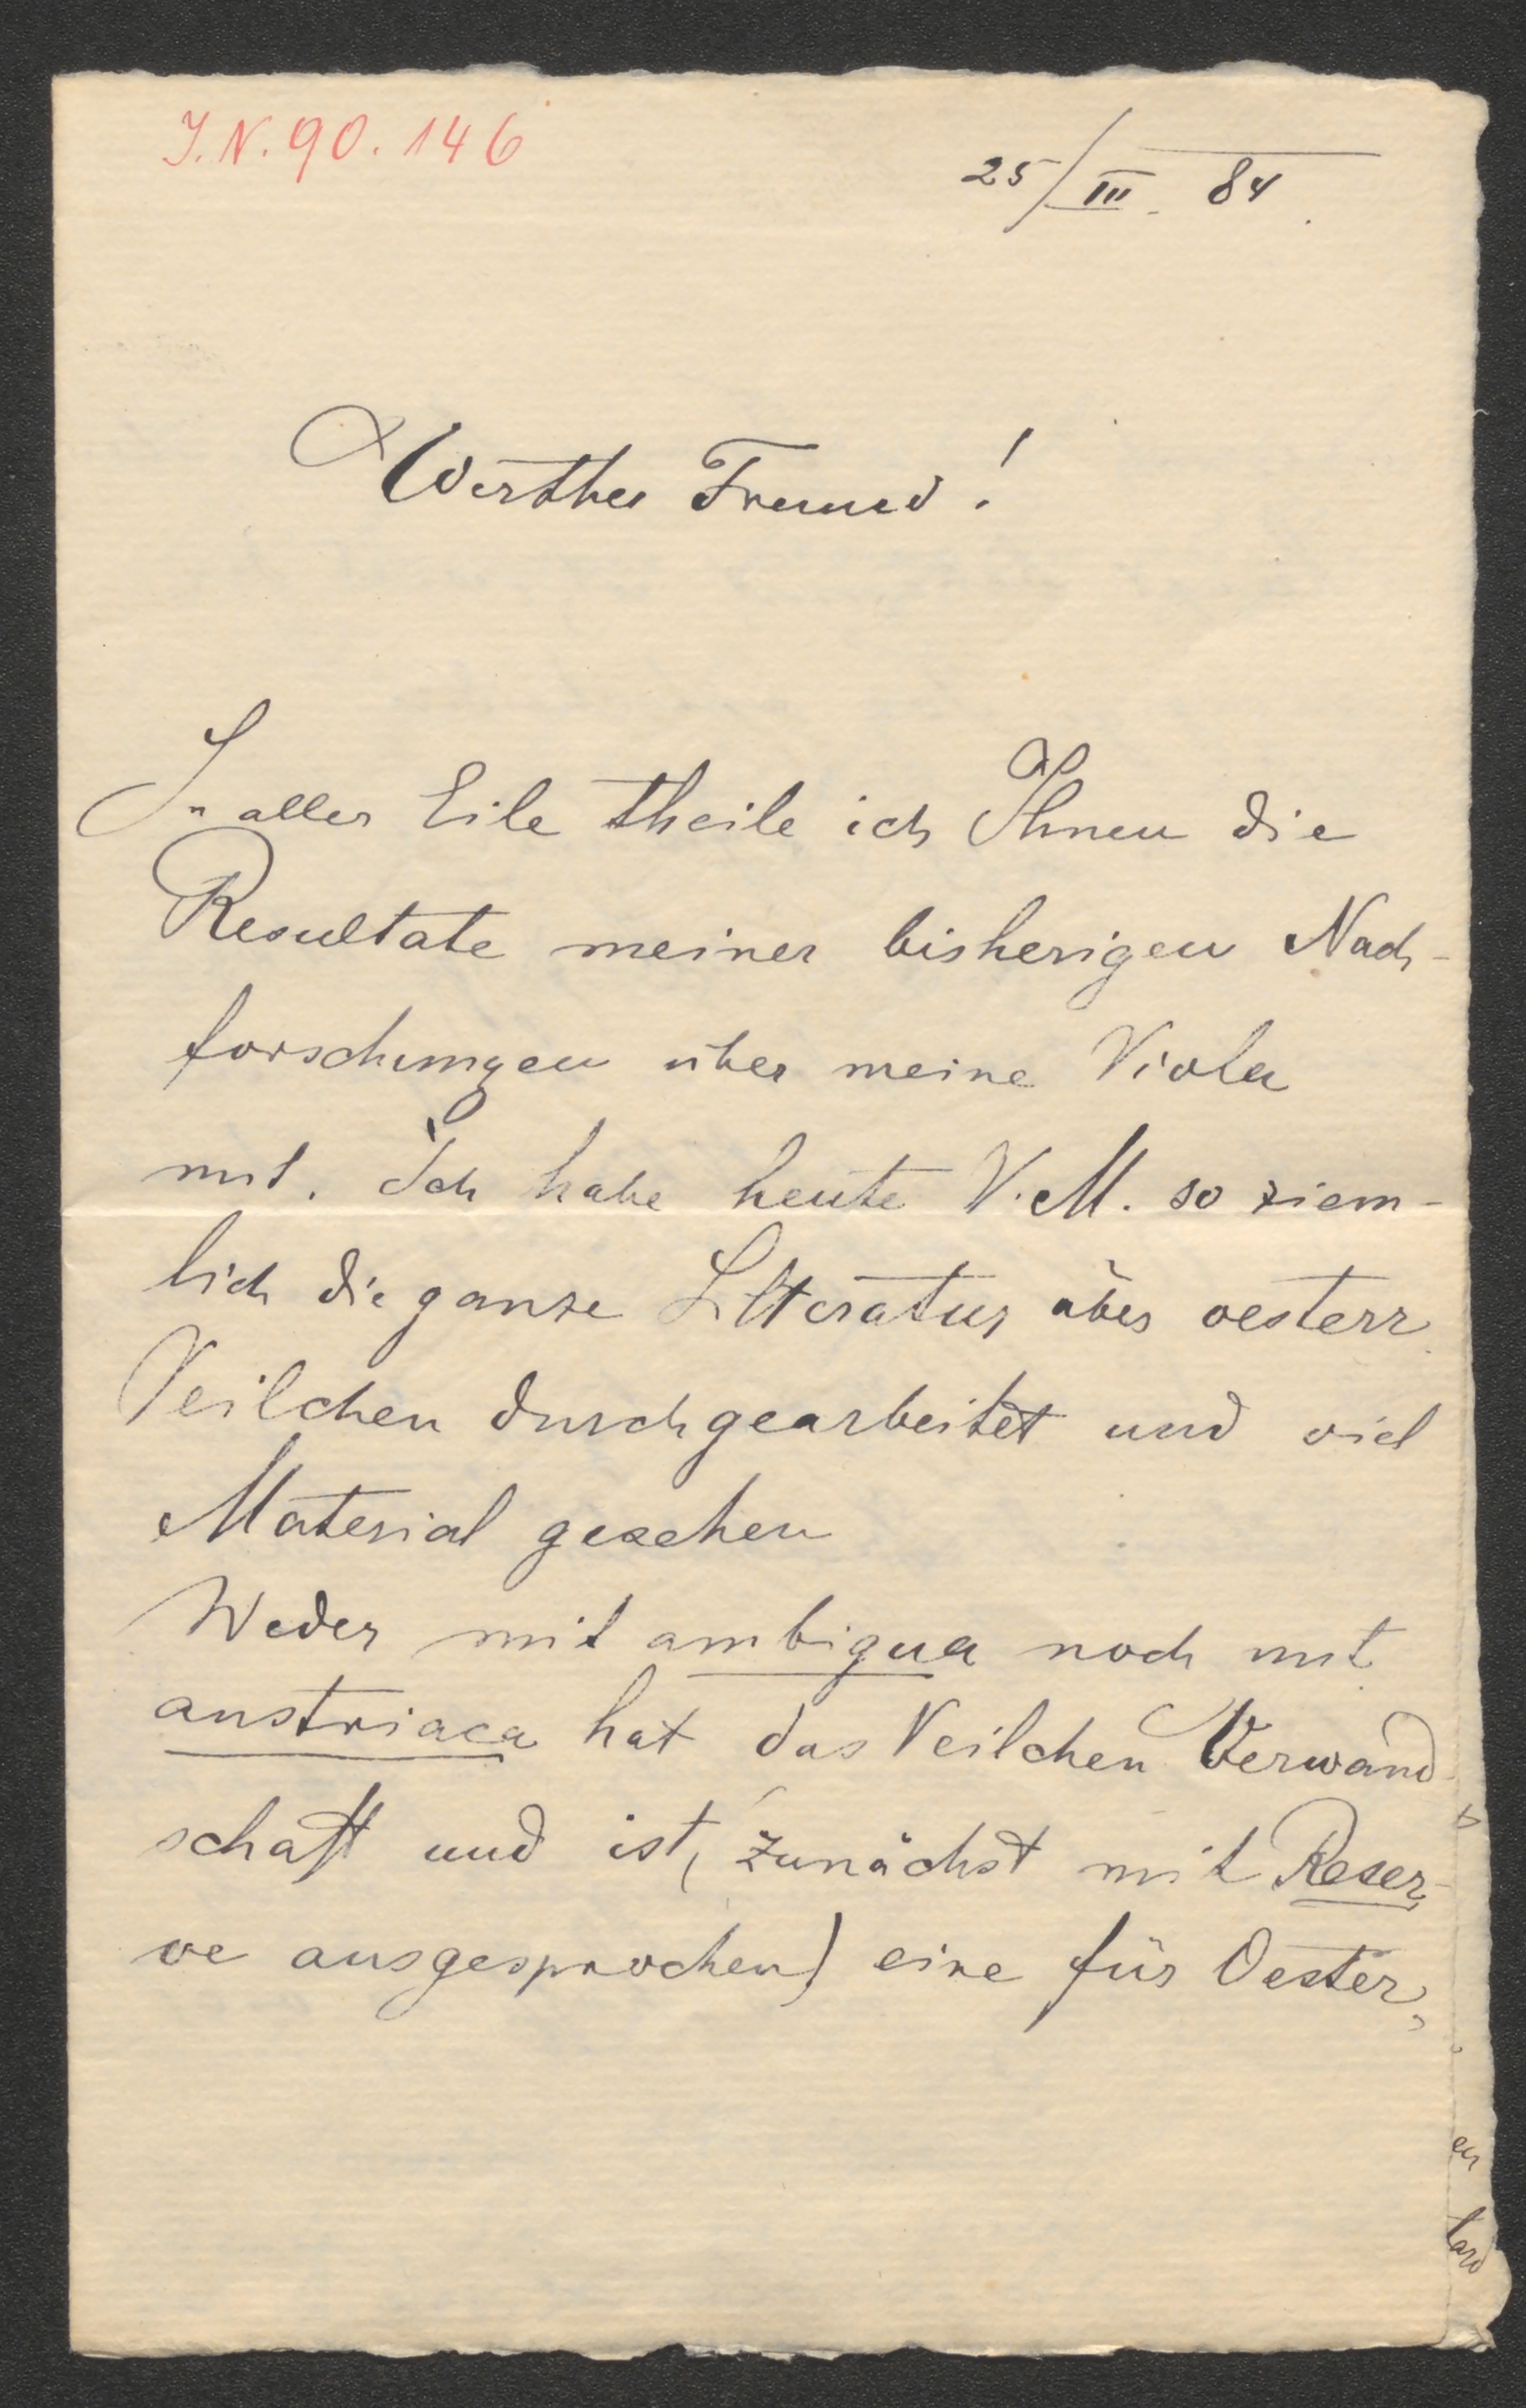 J.N. 90.146
25/III. 84.
Werther Freund!
In aller Eile theile ich Ihnen die
Resultate meiner bisherigen Nach-
forschungen über meine Viola
mit. Ich habe heute V.M. so ziem-
lich die ganze Litteratur über oesterr.
Veilchen durchgearbeitet und viel
Material gesehen
Weder mit ambigua noch mit
austriaca hat das Veilchen Verwand-
schaft und ist, (zunächst mit Reser-
ve ausgesprochen) eine für Oester,